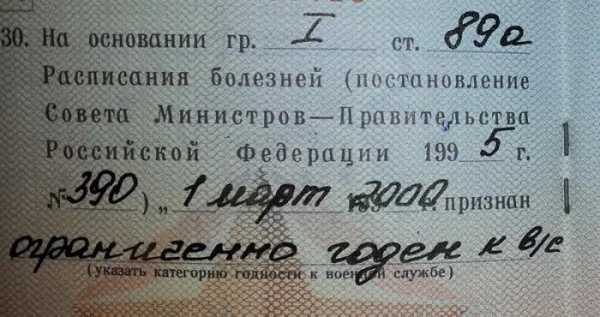 30. На основании гр. I ст. 89а
Расписания болезней (постановление
Совета Министров—Правительства
Российской Федерации 1995 г.
№ 390) „ 1 март 2000 г. признан
ограниченно годен к в/с
(указать категорию годности к военной службе)